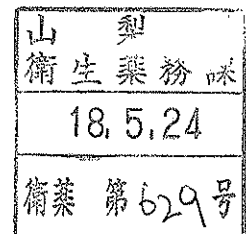 山梨
衛生薬務課
18.5.24
衛薬 第629号